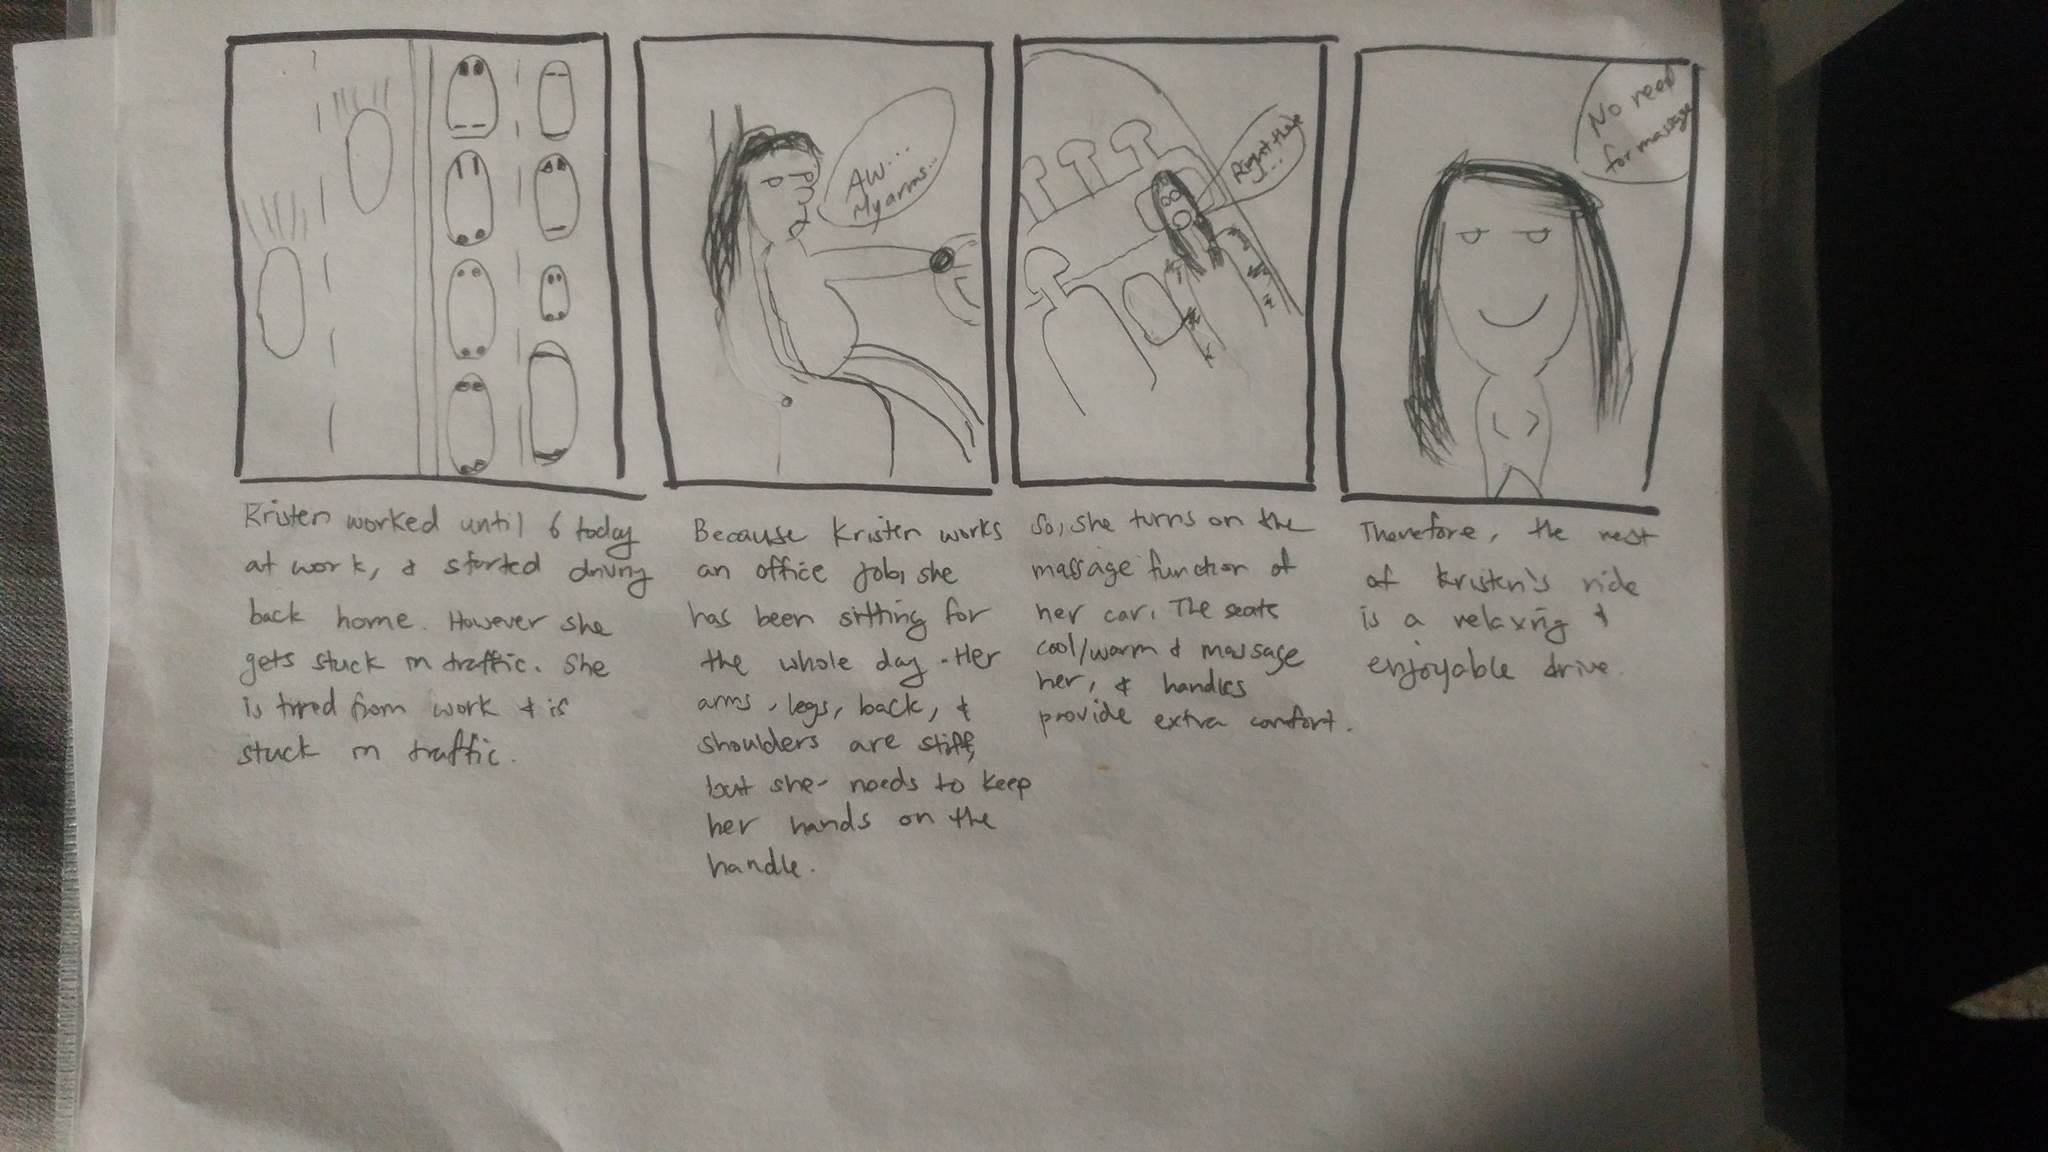 AW...
My arms...
Right there
...
No need
for massage
Kristen worked until 6 today
at work, & started driving
back home. However she
gets stuck in traffic. She
is tired from work & is
stuck in traffic.
Because Kristen works
an office job, she
has been sitting for
the whole day. Her
arms, legs, back, &
shoulders are stiff,
but she needs to keep
her hands on the
handle.
So, she turns on the
massage function of
her car. The seats
cool/warm & massage
her, & handles
provide extra comfort.
Therefore, the rest
of Kristen's ride
is a relaxing &
enjoyable drive.